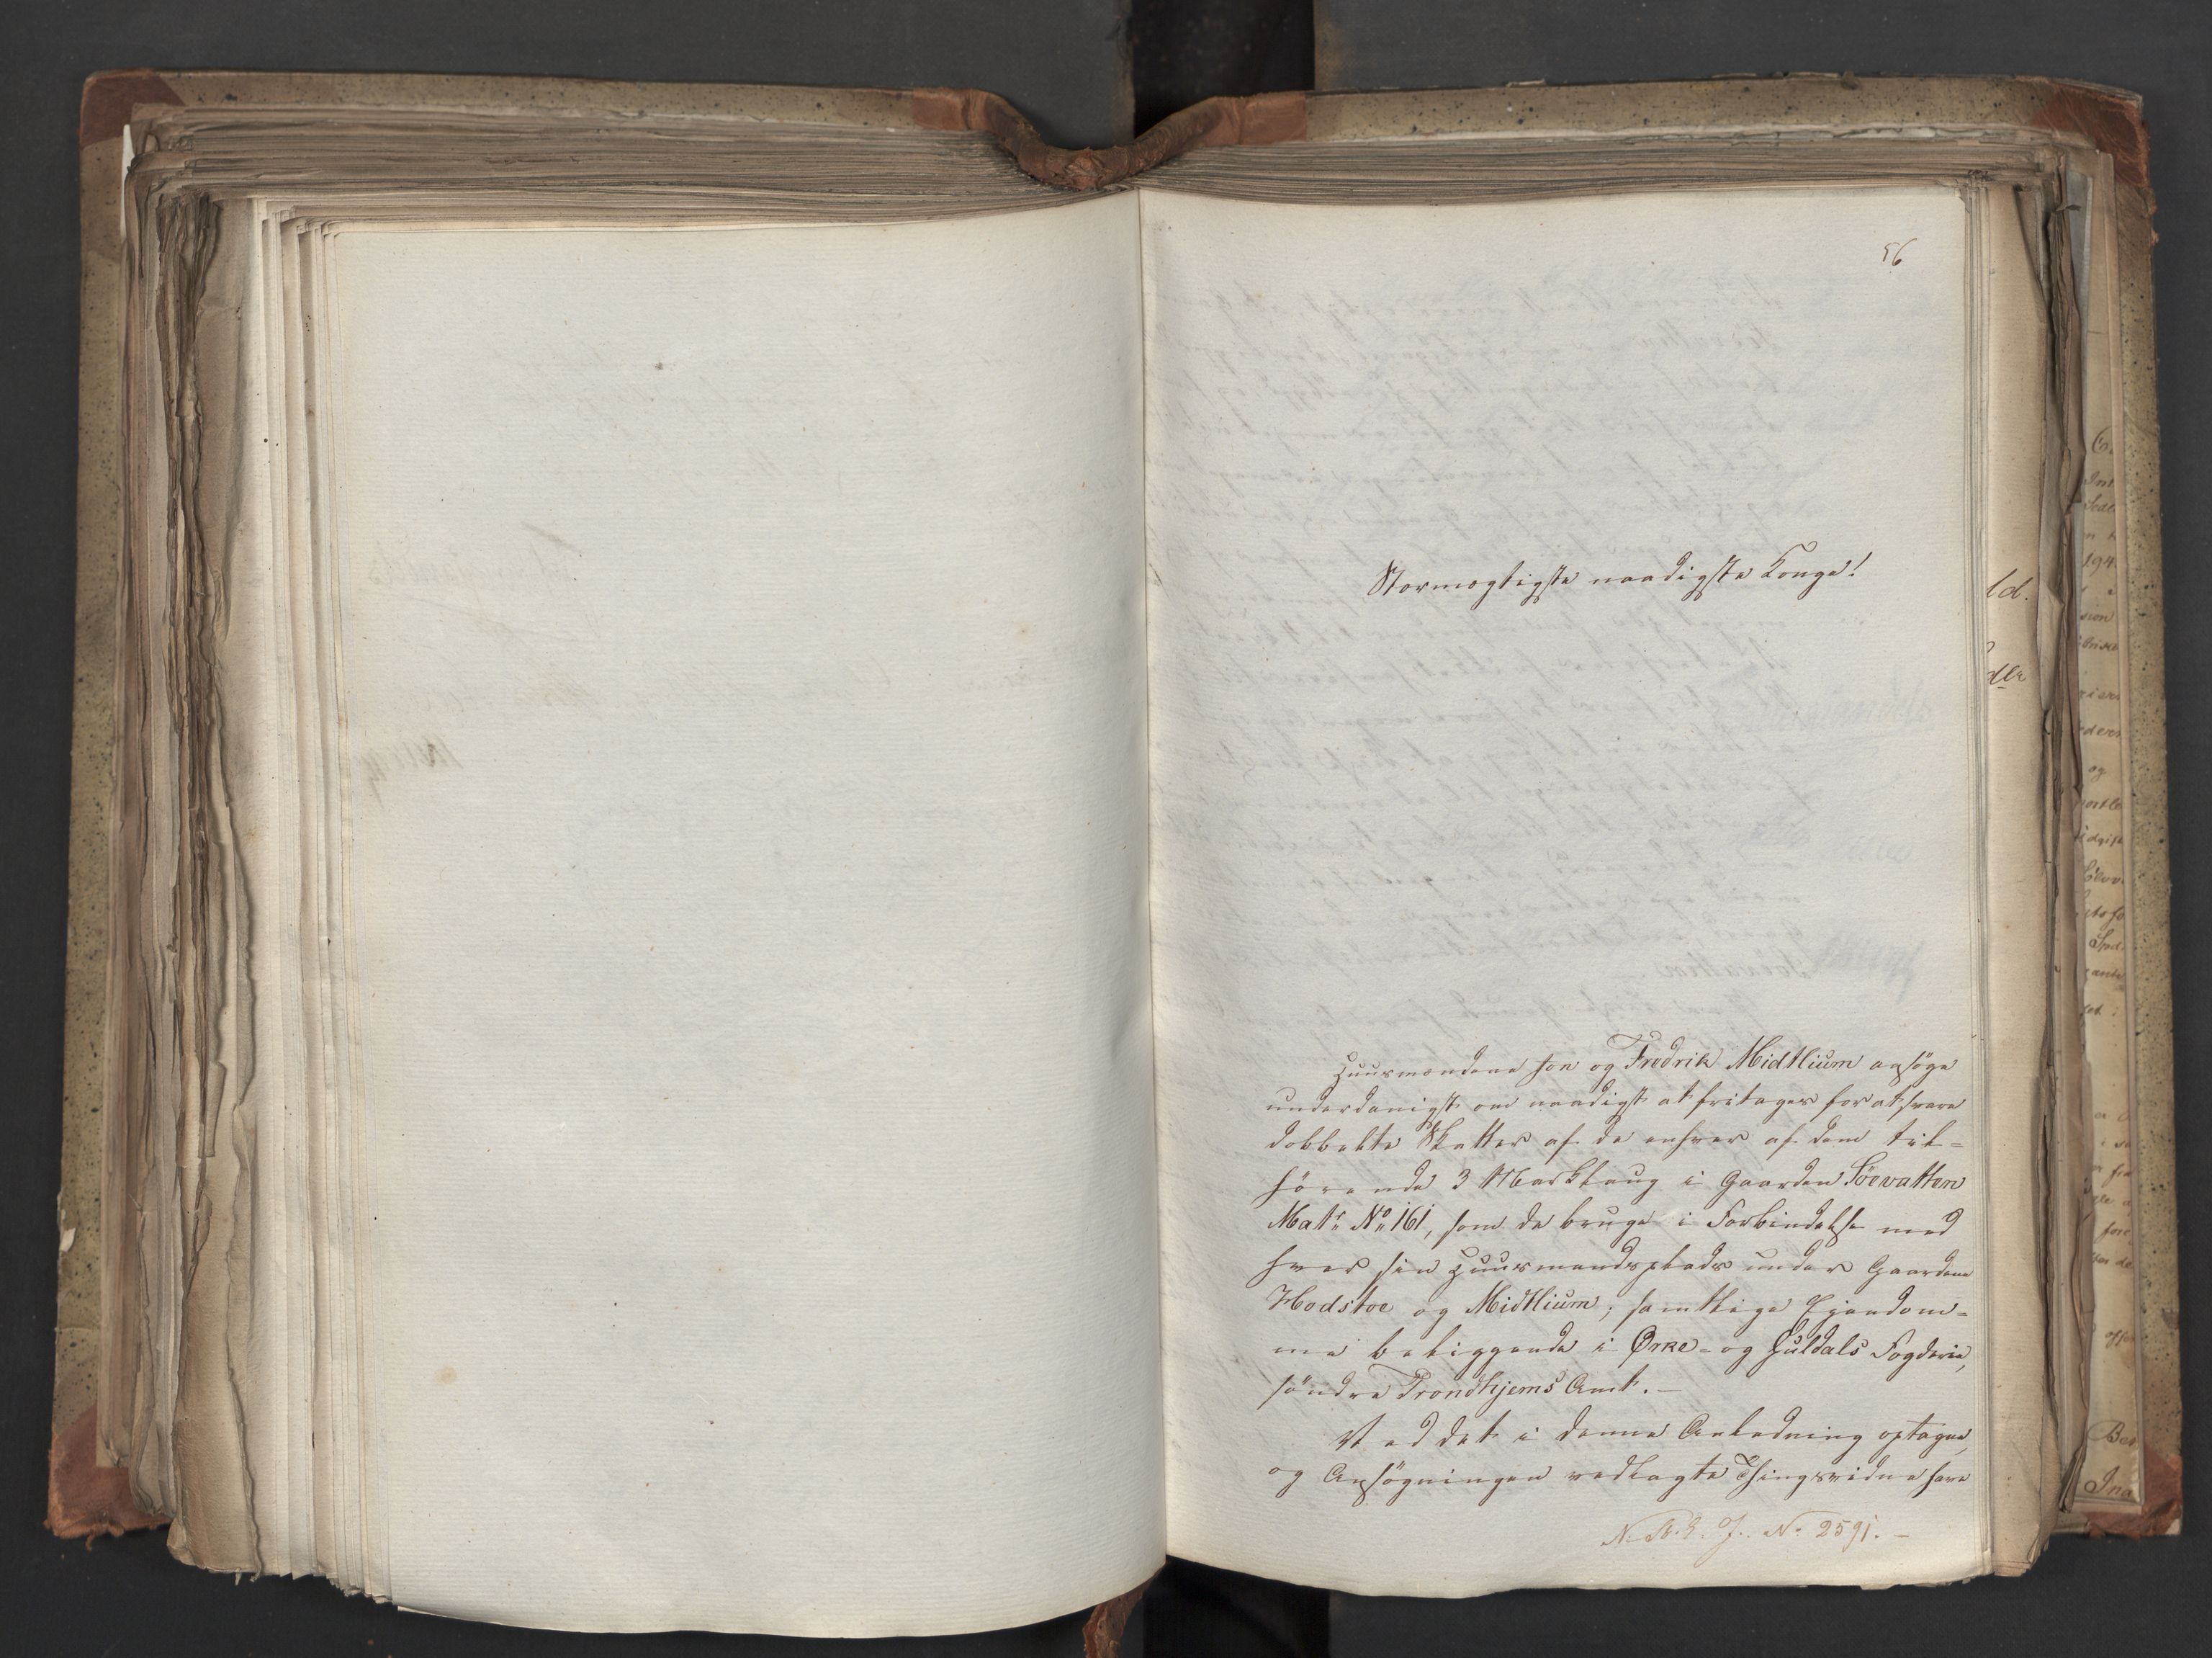 56
Stormægtigste naadigste Konge!
Huusmændene Jon og Fredrik Midtlium ansøge
underdanigst om naadigst at fritages for at svare
dobbelte Skatter af de enhver af dem til-
hørende 3 Marklaug i Gaarden Söevatten
Matr No 161, som de bruge i Forbindelse med
hver sin Huusmandsplads under Gaardene
Hodstoe og Midtlium; samtlige Eiendom-
me beliggende i Orke- og Guldals Fogderie,
søndre Trondhjems Amt. –
Ved det i denne Anledning optagne,
og Ansøgningen vedlagte Thingsvidne have
J. No 2591. –